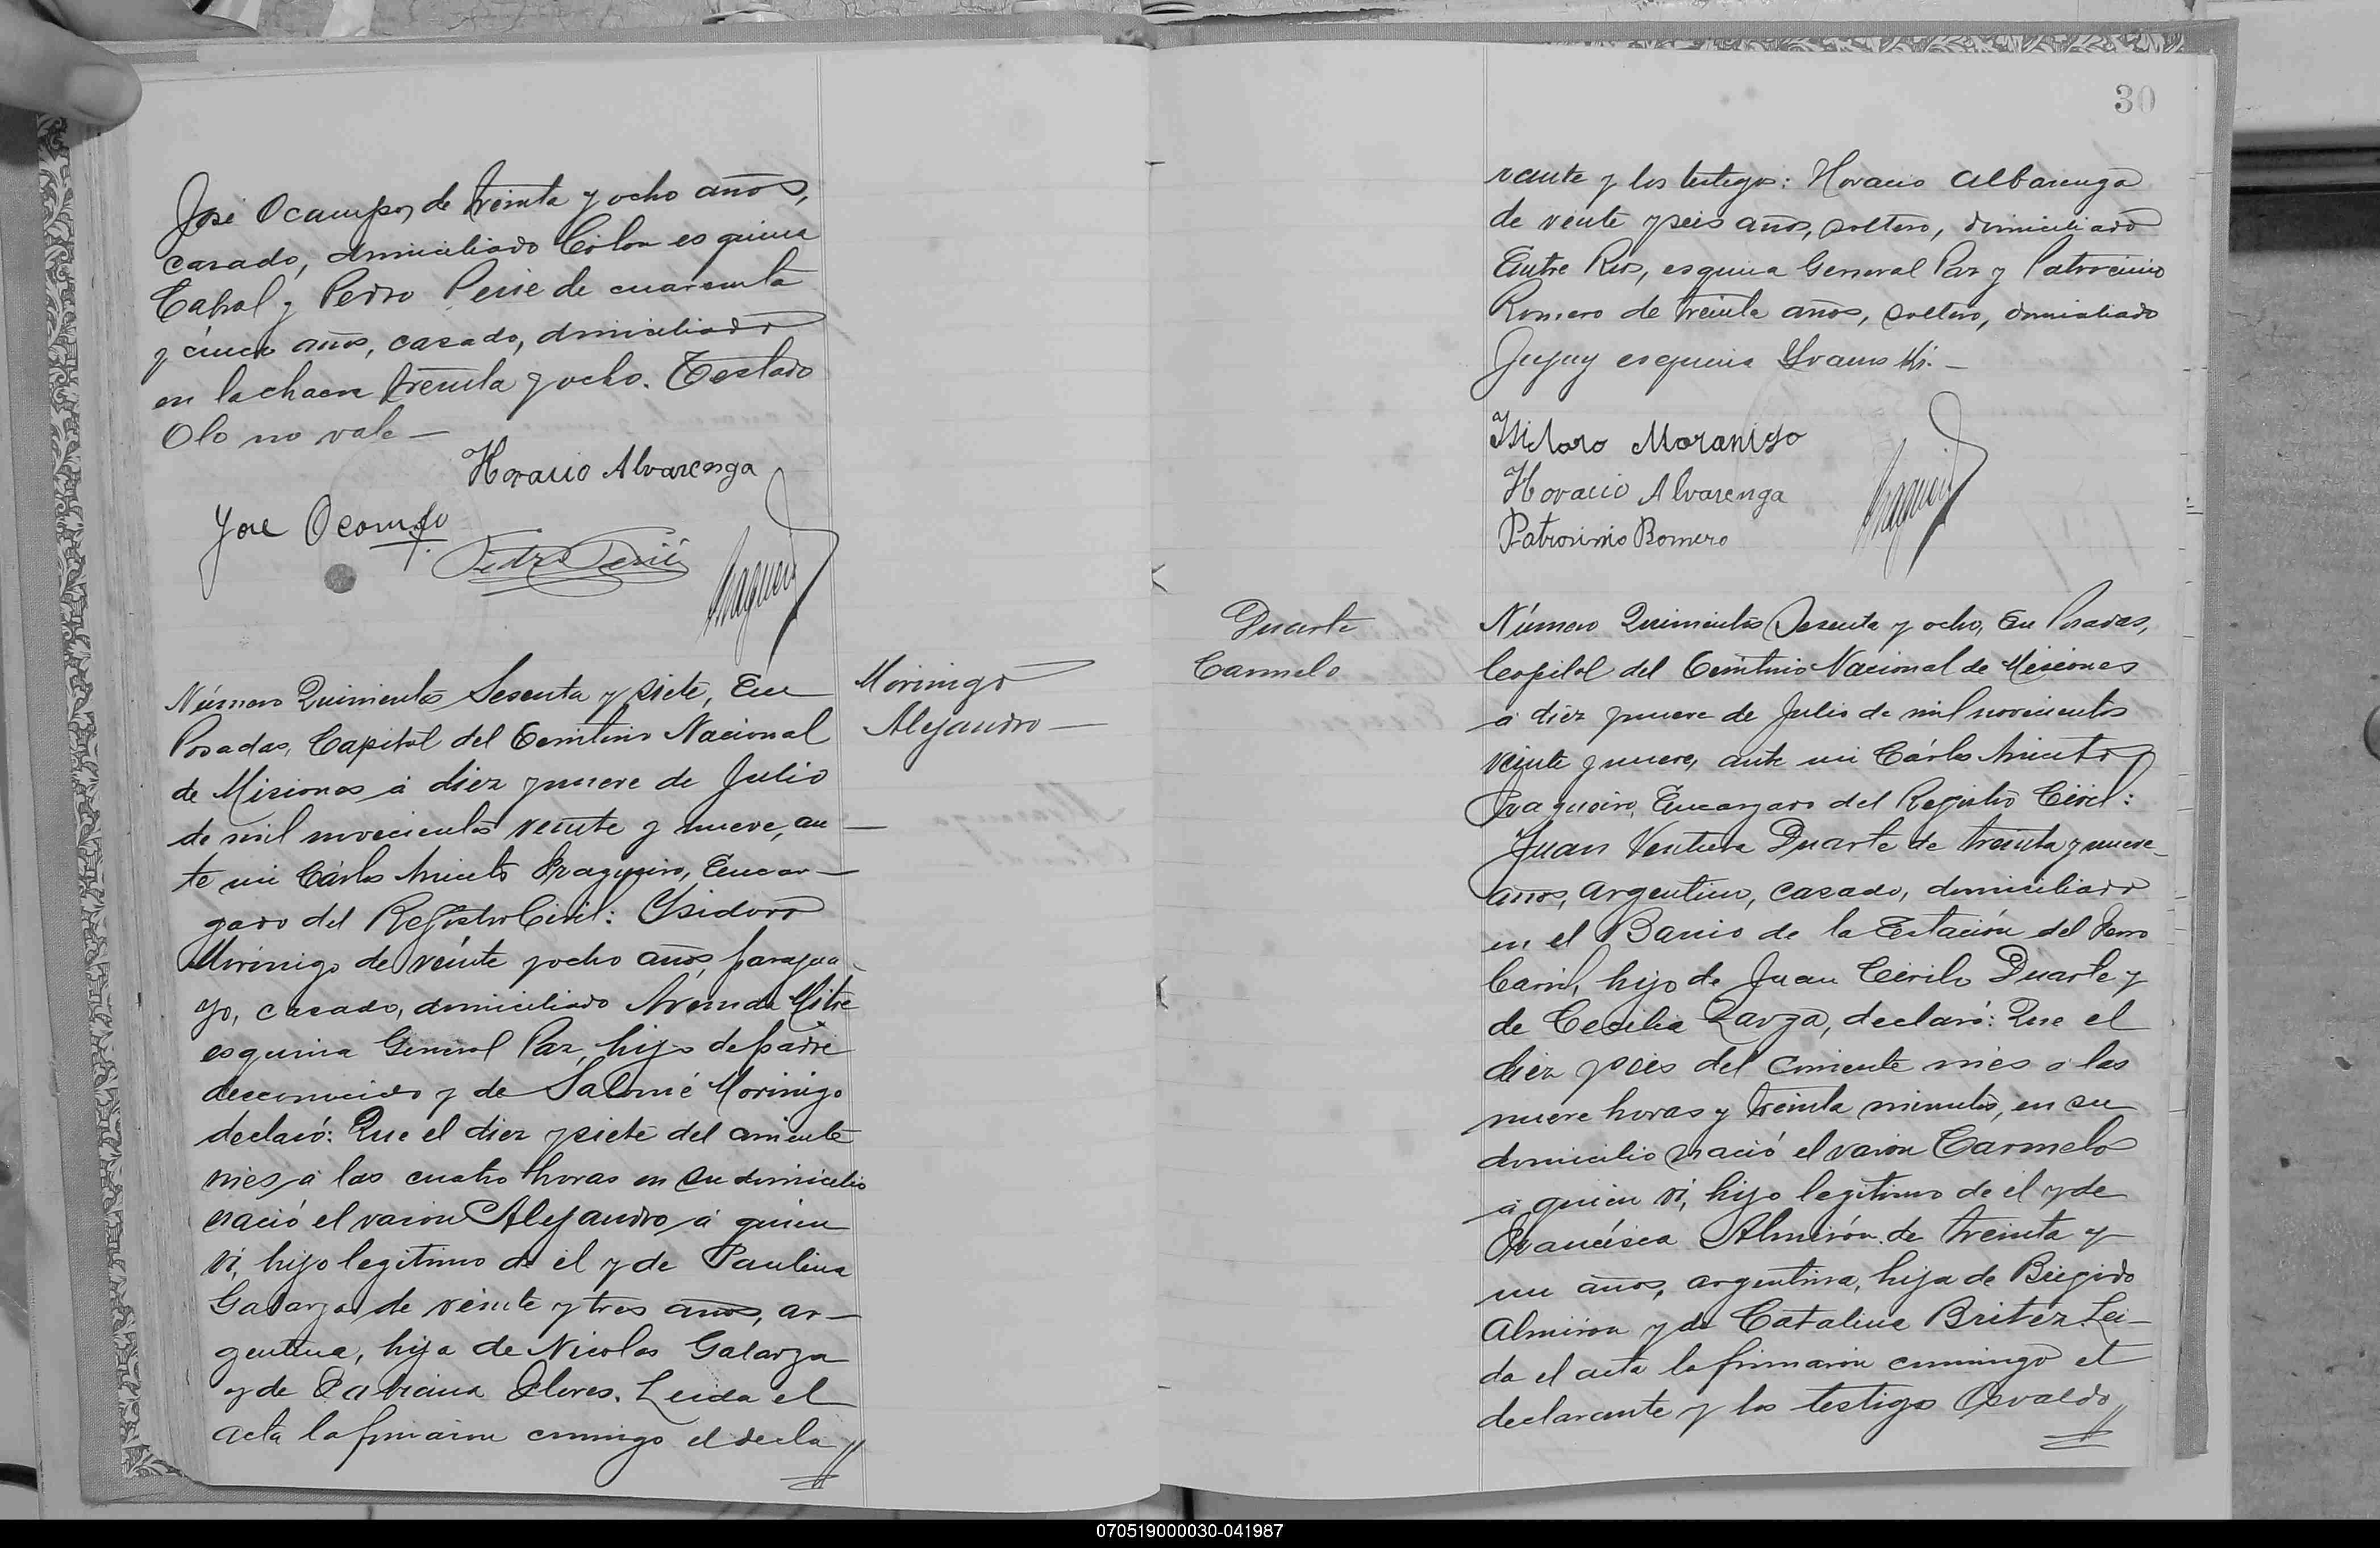 José Ocampo, de treinta y ocho años,
casado, domiciliado Colon esquina
Cabral y Pedro Perié de cuarenta
y cinco años, casado, domiciliado
en la chacra treinta y ocho. Testado
Olo no vale —
Horacio Alvarenga
Jose Ocampo
Pedro Perié
Número Quinientos Sesenta y siete, En
Posadas, Capital del Territorio Nacional
de Misiones á diez y nueve de Julio
de mil novecientos veinte y nueve, an
te mi Cárlos Aniceto Fragueiro, Encar—
gado del Registro Civil: Ysidoro
Morinigo de veinte y ocho años, paragua
yo, casado, domiciliado Avenida Mitre
esquina General Paz, hijo de padre
desconocido y de Salomé Morinigo
declaró: Que el diez y siete del corriente
mes, á las cuatro horas en su domicilio
nació el varon Alejandro á quien
ví, hijo legitimo de el y de Paulina
Galarza de veinte y tres años, ar—
gentina, hija de Nicolas Galarza
y de Fabiana Flores. Leida el
acta la firmaron conmigo el decla//
Morinigo
Alejandro —
30
rante y los testigos: Horacio Albarenga
de veinte y seis años, soltero, domiciliado
Entre Rios, esquina General Paz y Patrocinio
Romero de treinta años, soltero, domiciliado
Jujuy esquina
Isidoro Moranigo
Horacio Alvarenga
Patrosinio Romero
Duarte
Carmelo
Número Quinientos Sesenta y ocho, En Posadas,
Capital del Territorio Nacional de Misiones
á diez y nueve de Julio de mil novecientos
veinte y nueve, ante mi Cárlos Aniceto
Fragueiro, Encargado del Registro Civil:
Juan Ventura Duarte de treinta y nueve
años, argentino, casado, domiciliado
en el Barrio de la Estación del Ferro
Carril, hijo de Juan Cirilo Duarte y
de Cecilia Zarza, declaró: Que el
diez y seis del corriente mes á las
nueve horas y treinta minutos, en su
domicilio nació el varon Carmelo
á quien ví, hijo legitimo de el y de
Francisca Almirón de treinta y
un años, argentina, hija de Brigido
Almiron y de Catalina Britez. Lei—
da el acta la firmaron conmigo el
declarante y los testigos Osvaldo//
070519000030-041987